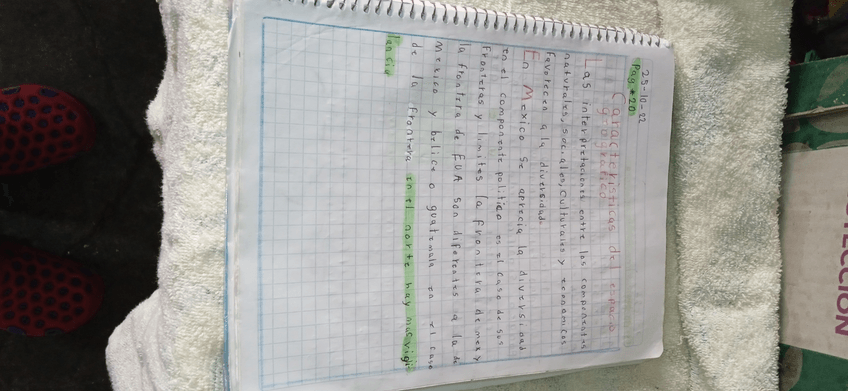 25-10-22
Pag. 20
Características del espacio
geografico
Las interpretaciones entre los componentes
naturales, sociales, culturales y economicos
favorecen a la diversidad.
En Mexico se aprecia la diversidad
en el componente politico es el caso de sus
Fronteras y limites la frontera de mex y
la frontera de EUA son diferentes a la de
Mexico y belice o guatemala en el caso
de la frontera en el norte hay mas vigi
lancia
CCION